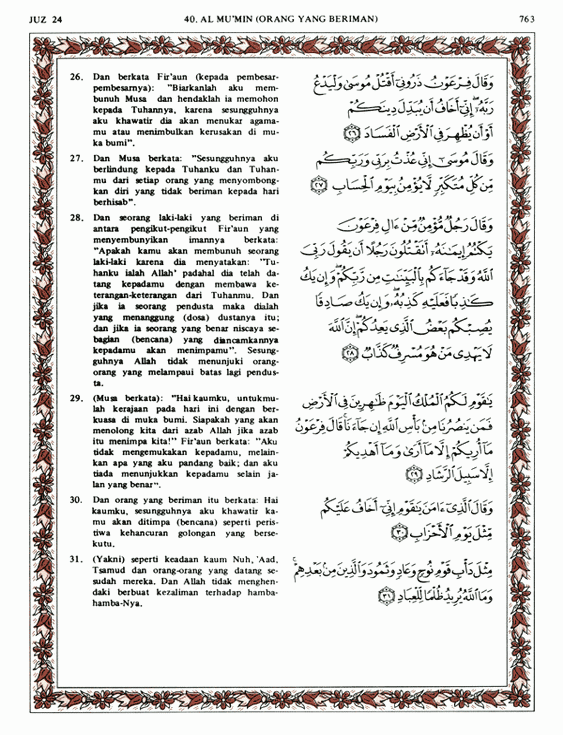 JUZ 24
40. AL MU'MIN (ORANG YANG BERIMAN)
763
26. Dan berkata Fir'aun (kepada pembesar-
pembesarnya): "Biarkanlah aku mem-
bunuh Musa dan hendaklah ia memohon
kepada Tuhannya, karena sesungguhnya
aku khawatir dia akan menukar agama-
mu atau menimbulkan kerusakan di mu-
ka bumi".
27. Dan Musa berkata: "Sesungguhnya aku
berlindung kepada Tuhanku dan Tuhan-
mu dari setiap orang yang menyombong-
kan diri yang tidak beriman kepada hari
berhisab".
28. Dan seorang laki-laki yang beriman di
antara pengikut-pengikut Fir'aun yang
menyembunyikan imannya berkata:
"Apakah kamu akan membunuh seorang
laki-laki karena dia menyatakan: "Tu-
hanku ialah Allah' padahal dia telah da-
tang kepadamu dengan membawa ke-
terangan-keterangan dari Tuhanmu. Dan
jika ia seorang pendusta maka dialah
yang menanggung (dosa) dustanya itu;
dan jika ia seorang yang benar niscaya se-
bagian (bencana) yang diancamkannya
kepadamu akan menimpamu". Sesung-
guhnya Allah tidak menunjuki orang-
orang yang melampaui batas lagi pendus-
ta.
29. (Musa berkata): "Hai kaumku, untukmu-
lah kerajaan pada hari ini dengan ber-
kuasa di muka bumi. Siapakah yang akan
menolong kita dari azab Allah jika azab
itu menimpa kita!" Fir'aun berkata: "Aku
tidak mengemukakan kepadamu, melain-
kan apa yang aku pandang baik; dan aku
tiada menunjukkan kepadamu selain ja-
lan yang benar".
30. Dan orang yang beriman itu berkata: Hai
kaumku, sesungguhnya aku khawatir ka-
mu akan ditimpa (bencana) seperti peris-
tiwa kehancuran golongan yang berse-
kutu.
31. (Yakni) seperti keadaan kaum Nuh, 'Aad,
Tsamud dan orang-orang yang datang se-
sudah mereka. Dan Allah tidak menghen-
daki berbuat kezaliman terhadap hamba-
hamba-Nya.
وَقَالَ فِرْعَوْنُ ذَرُونِىٓ أَقْتُلْ مُوسَىٰ وَلْيَدْعُ
رَبَّهُۥٓ إِنِّىٓ أَخَافُ أَن يُبَدِّلَ دِينَكُمْ
أَوْ أَن يُظْهِرَ فِى ٱلْأَرْضِ ٱلْفَسَادَ ﴿٢٦﴾
وَقَالَ مُوسَىٰٓ إِنِّى عُذْتُ بِرَبِّى وَرَبِّكُم
مِّن كُلِّ مُتَكَبِّرٍ لَّا يُؤْمِنُ بِيَوْمِ ٱلْحِسَابِ ﴿٢٧﴾
وَقَالَ رَجُلٌ مُّؤْمِنٌ مِّنْ ءَالِ فِرْعَوْنَ
يَكْتُمُ إِيمَٰنَهُۥٓ أَتَقْتُلُونَ رَجُلًا أَن يَقُولَ رَبِّىَ
ٱللَّهُ وَقَدْ جَآءَكُم بِٱلْبَيِّنَٰتِ مِن رَّبِّكُمْ وَإِن يَكُ
كَٰذِبًا فَعَلَيْهِ كَذِبُهُۥ وَإِن يَكُ صَادِقًا
يُصِبْكُم بَعْضُ ٱلَّذِى يَعِدُكُمْ إِنَّ ٱللَّهَ
لَا يَهْدِى مَنْ هُوَ مُسْرِفٌ كَذَّابٌ ﴿٢٨﴾
يَٰقَوْمِ لَكُمُ ٱلْمُلْكُ ٱلْيَوْمَ ظَٰهِرِينَ فِى ٱلْأَرْضِ
فَمَن يَنصُرُنَا مِنۢ بَأْسِ ٱللَّهِ إِن جَآءَنَا قَالَ فِرْعَوْنُ
مَآ أُرِيكُمْ إِلَّا مَآ أَرَىٰ وَمَآ أَهْدِيكُمْ
إِلَّا سَبِيلَ ٱلرَّشَادِ ﴿٢٩﴾
وَقَالَ ٱلَّذِىٓ ءَامَنَ يَٰقَوْمِ إِنِّىٓ أَخَافُ عَلَيْكُم
مِّثْلَ يَوْمِ ٱلْأَحْزَابِ ﴿٣٠﴾
مِثْلَ دَأْبِ قَوْمِ نُوحٍ وَعَادٍ وَثَمُودَ وَٱلَّذِينَ مِنۢ بَعْدِهِمْ
وَمَا ٱللَّهُ يُرِيدُ ظُلْمًا لِّلْعِبَادِ ﴿٣١﴾